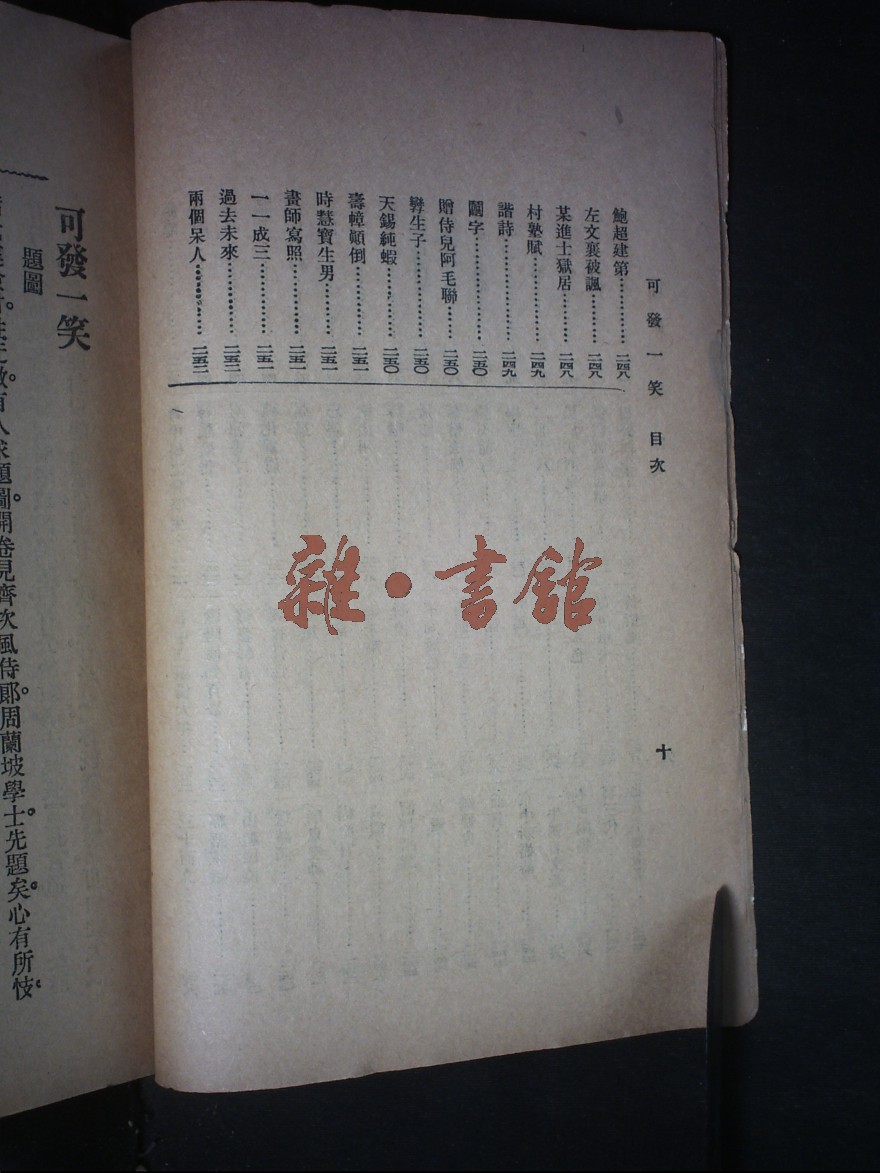 可發一笑　目次
十
鮑超建第…………二四八
左文襄被諷………二四八
某進士獄居………二四八
村塾賦……………二四九
諧詩………………二四九
鬮字………………二五〇
贈侍兒阿毛聯……二五〇
孿生子……………二五〇
天錫純蝦…………二五〇
壽幛顛倒…………二五一
時慧寶生男………二五一
畫師寫照…………二五一
一一成三…………二五一
過去未來…………二五二
兩個呆人…………二五二
可發一笑
題圖
人求題圖。開卷見齊次風侍郎。周蘭坡學士先題矣。心有所忮。
雜·書館